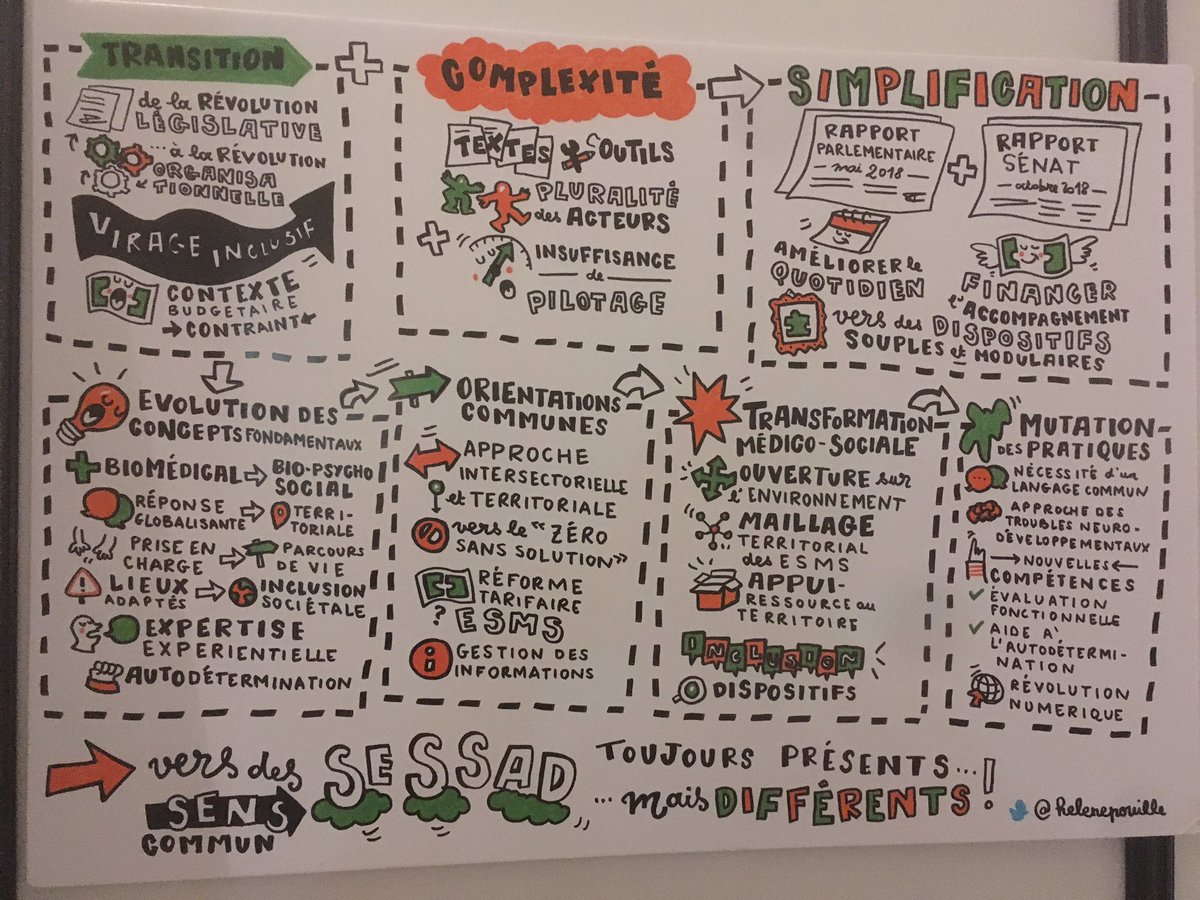 TRANSITION
de la RÉVOLUTION
LÉGISLATIVE
...à la RÉVOLUTION
ORGANISA
TIONNELLE
VIRAGE INCLUSIF
CONTEXTE
BUDGETAIRE
CONTRAINT
COMPLEXITÉ
TEXTES OUTILS
PLURALITÉ
des ACTEURS
INSUFFISANCE
de
PILOTAGE
SIMPLIFICATION
RAPPORT
PARLEMENTAIRE
mai 2018
RAPPORT
SÉNAT
octobre 2018
AMÉLIORER le
QUOTIDIEN
FINANCER
l'ACCOMPAGNEMENT
vers des DISPOSITIFS
SOUPLES et MODULAIRES
EVOLUTION DES
CONCEPTS FONDAMENTAUX
BIOMÉDICAL → BIO-PSYCHO
SOCIAL
RÉPONSE
GLOBALISANTE → TERRI-
TORIALE
PRISE EN
CHARGE → PARCOURS
DE VIE
LIEUX
ADAPTÉS → INCLUSION
SOCIÉTALE
EXPERTISE
EXPERIENTIELLE
AUTODÉTERMINATION
ORIENTATIONS
COMMUNES
APPROCHE
INTERSECTORIELLE
et TERRITORIALE
vers le "ZÉRO
SANS SOLUTION"
RÉFORME
TARIFAIRE
? ESMS
i GESTION DES
INFORMATIONS
TRANSFORMATION
MÉDICO-SOCIALE
OUVERTURE sur
l'ENVIRONNEMENT
MAILLAGE
TERRITORIAL
des ESMS
APPUI-
RESSOURCE au
TERRITOIRE
INCLUSION
DISPOSITIFS
MUTATION
DES PRATIQUES
NÉCESSITÉ d'un
LANGAGE COMMUN
APPROCHE DES
TROUBLES NEURO-
DÉVELOPPEMENTAUX
→ NOUVELLES ←
COMPÉTENCES
✓ ÉVALUATION
FONCTIONNELLE
✓ AIDE À
L'AUTODÉTERMI-
NATION
RÉVOLUTION
NUMERIQUE
vers des SESSAD
SENS
COMMUN
TOUJOURS PRÉSENTS...
...mais DIFFÉRENTS!
@helenepouille